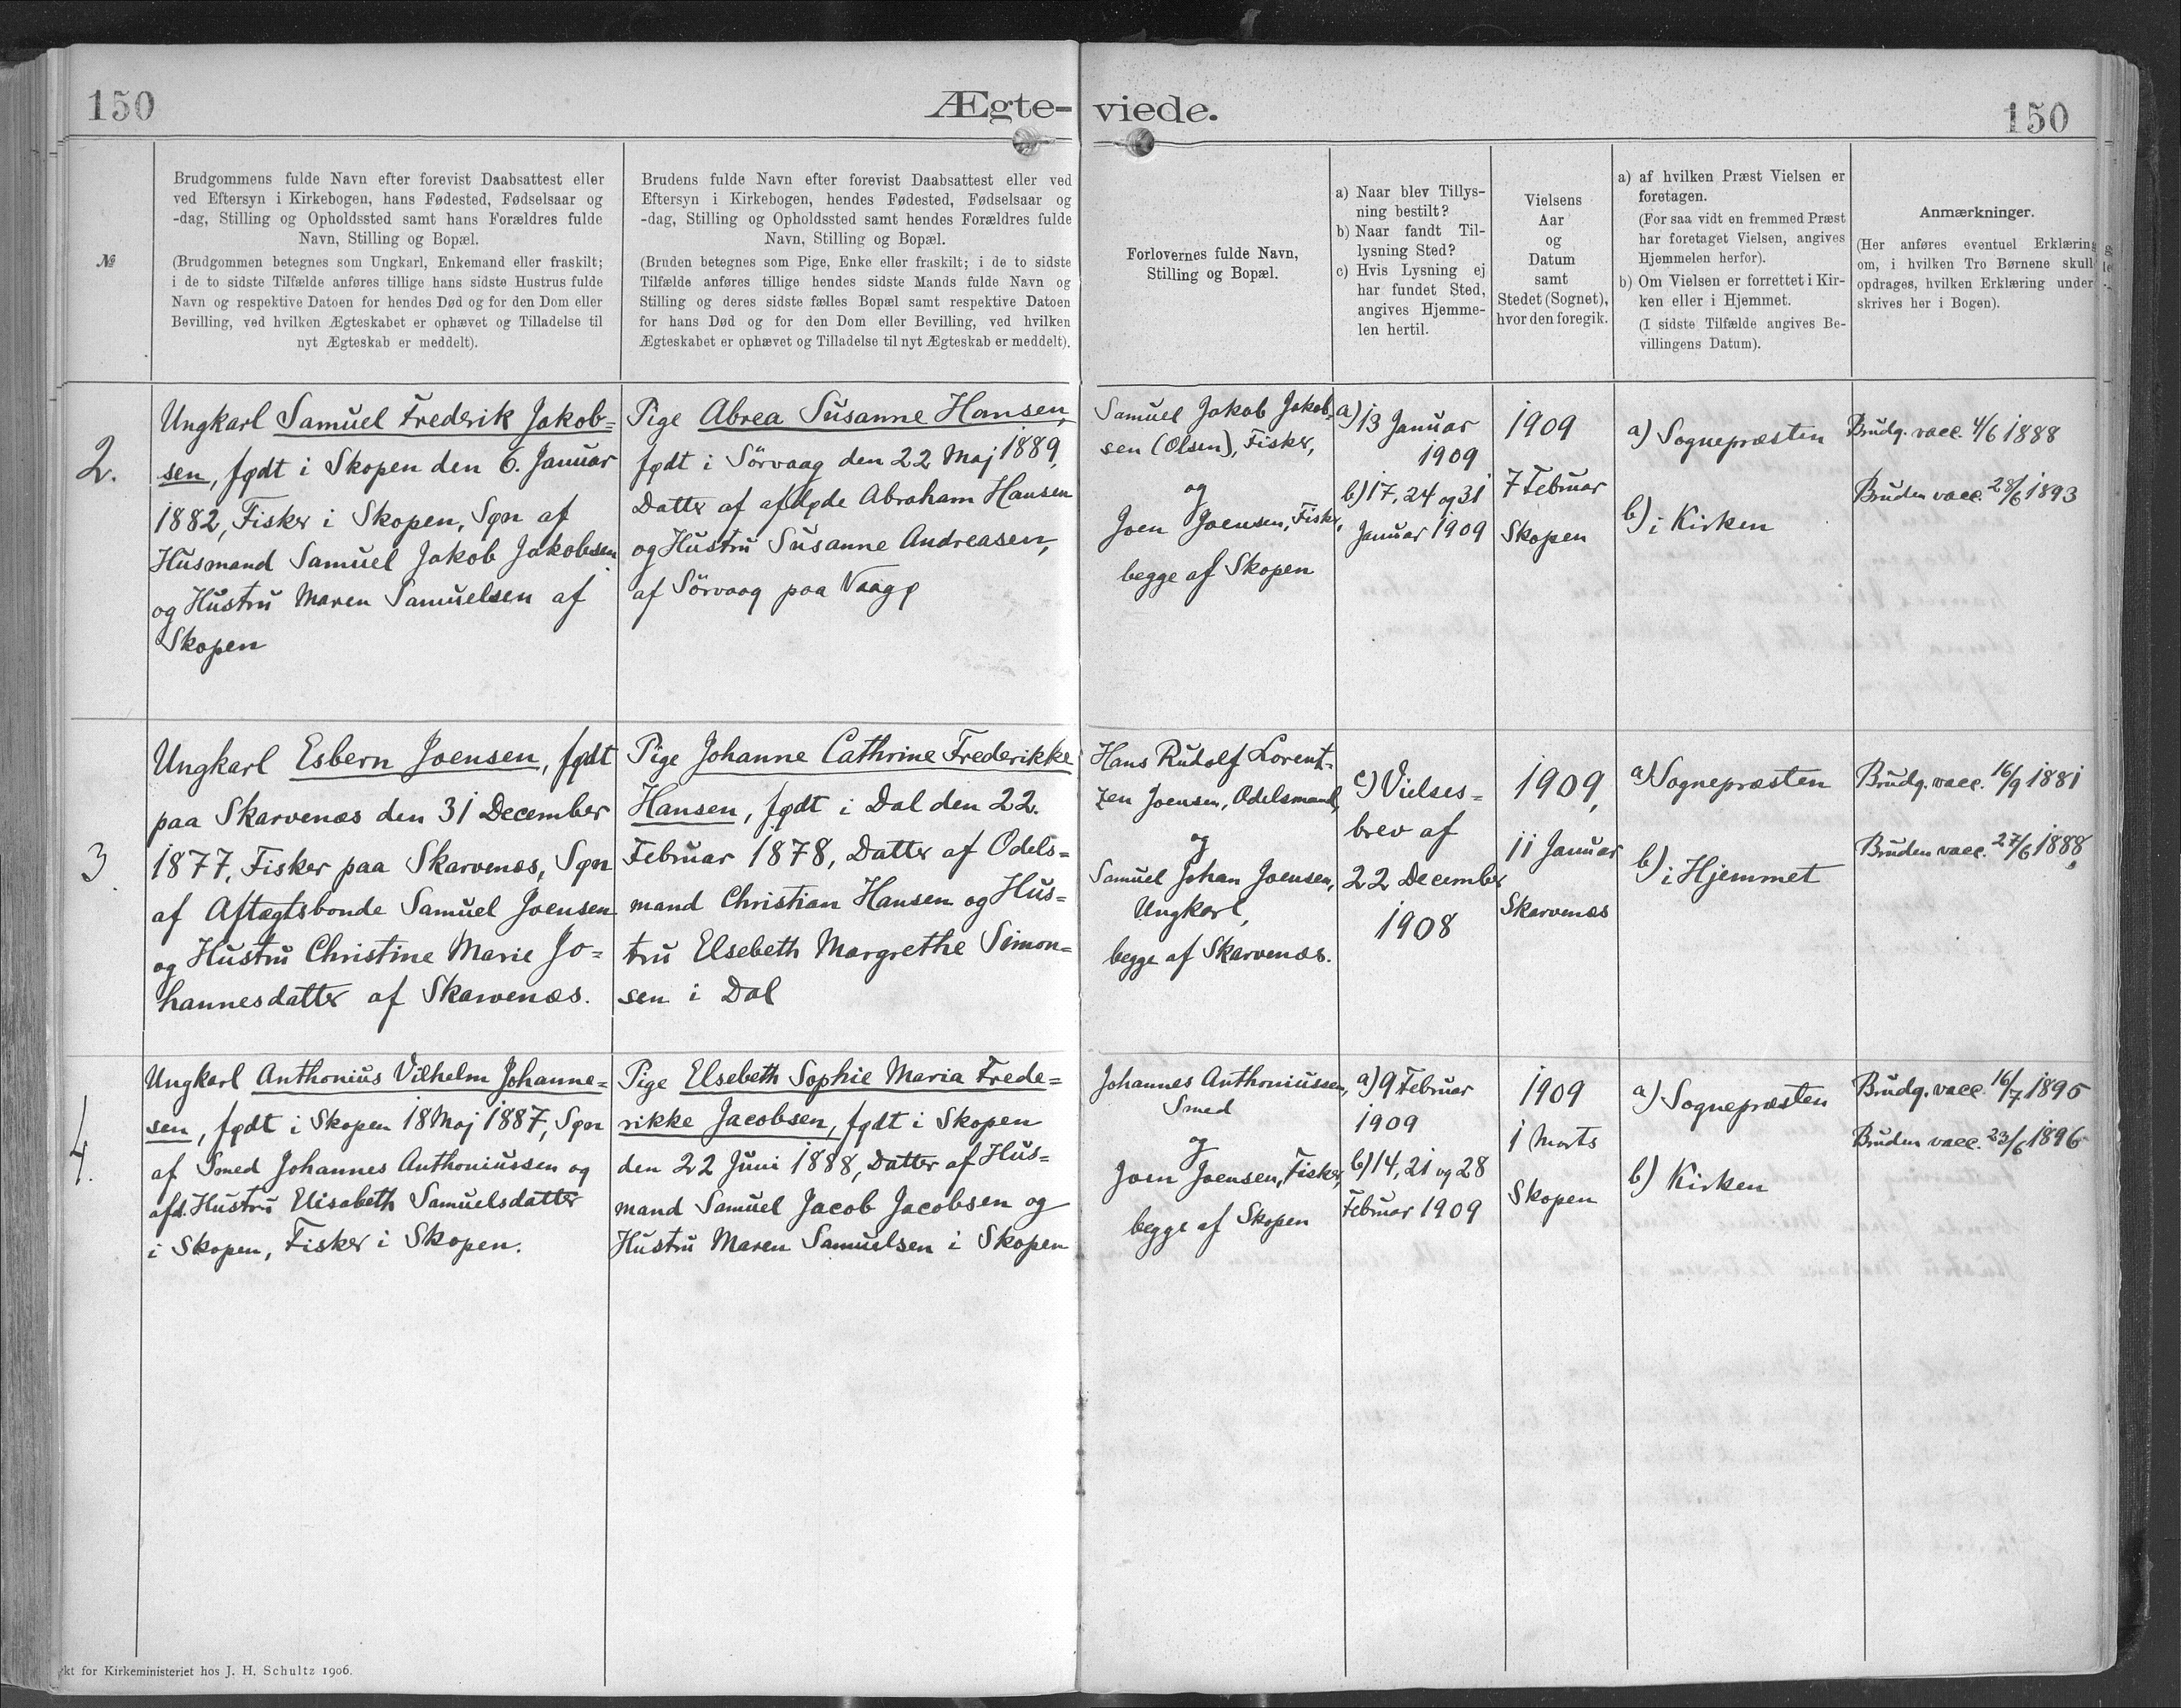 150
Ægte-
viede.
150
№
Brudgommens fulde Navn efter forevist Daabsattest eller
ved Eftersyn i Kirkebogen, hans Fødested, Fødselsaar og
-dag, Stilling og Opholdssted samt hans Forældres fulde
Navn, Stilling og Bopæl.
(Brudgommen betegnes som Ungkarl, Enkemand eller fraskilt;
i de to sidste Tilfælde anføres tillige hans sidste Hustrus fulde
Navn og respektive Datoen for hendes Død og for den Dom eller
Bevilling, ved hvilken Ægteskabet er ophævet og Tilladelse til
nyt Ægteskab er meddelt).
Brudens fulde Navn efter forevist Daabsattest eller ved
Eftersyn i Kirkebogen, hendes Fødested, Fødselsaar og
-dag, Stilling og Opholdssted samt hendes Forældres fulde
Navn, Stilling og Bopæl.
(Bruden betegnes som Pige, Enke eller fraskilt; i de to sidste
Tilfælde anføres tillige hendes sidste Mands fulde Navn og
Stilling og deres sidste fælles Bopæl samt respektive Datoen
for hans Død og for den Dom eller Bevilling, ved hvilken
Ægteskabet er ophævet og Tilladelse til nyt Ægteskab er meddelt).
Forlovernes fulde Navn,
Stilling og Bopæl.
a) Naar blev Tillys-
ning bestilt?
b) Naar fandt Til-
lysning Sted?
c) Hvis Lysning ej
har fundet Sted,
angives Hjemme-
len hertil.
Vielsens
Aar
og
Datum
samt
Stedet (Sognet),
hvor den foregik.
a) af hvilken Præst Vielsen er
foretagen.
(For saa vidt en fremmed Præst
har foretaget Vielsen, angives
Hjemmelen herfor).
b) Om Vielsen er forrettet i Kir-
ken eller i Hjemmet.
(I sidste Tilfælde angives Be-
villingens Datum).
Anmærkninger.
(Her anføres eventuel Erklæring
om, i hvilken Tro Børnene skull
opdrages, hvilken Erklæring under
skrives her i Bogen).
2.
Ungkarl Samuel Frederik Jakob=
sen, født i Skopen den 6. Januar
1882, Fisker i Skopen, Søn af
Husmand Samuel Jakob Jakobsen
og Hustru Maren Samuelsen af
Skopen
Pige Abrea Susanne Hansen,
født i Sörvaag den 22 Maj 1889,
Datter af afdøde Abraham Hansen
og Hustru Susanne Andreasen,
af Sörvaag paa Vaagø
Samuel Jakob Jakob-
sen (Olsen), Fisker,
og
Joen Joensen, Fisker,
begge af Skopen
a) 13 Januar
1909
b) 17, 24 og 31
Januar 1909
1909
7 Februar
Skopen
a) Sognepræsten
b) i Kirken
Brudg. vacc. 4/6 1888
Bruden vacc. 28/6 1893
3.
Ungkarl Esbern Joensen, født
paa Skarvenæs den 31 December
1877, Fisker paa Skarvenæs, Søn
af Aftægtsbonde Samuel Joensen
og Hustru Christine Marie Jo=
hannesdatter af Skarvenæs.
Pige Johanne Cathrine Frederikke
Hansen, født i Dal den 22.
Februar 1878, Datter af Odels=
mand Christian Hansen og Hus=
tru Elsebeth Margrethe Simon=
sen i Dal
Hans Rudolf Lorent-
zen Joensen, Odelsmand,
og
Samuel Johan Joensen,
Ungkarl,
begge af Skarvenæs.
c) Vielses=
brev af
22 December
1908
1909,
11 Januar
Skarvenæs
a) Sognepræsten
b) i Hjemmet
Brudg. vacc. 16/9 1881
Bruden vacc. 27/6 1888
4.
Ungkarl Anthonius Vilhelm Johanne=
sen, født i Skopen 18 Maj 1887, Søn
af Smed Johannes Anthoniussen og
afd. Hustru Elisabeth Samuelsdatter
i Skopen, Fisker i Skopen.
Pige Elsebeth Sophie Maria Frede=
rikke Jacobsen, født i Skopen
den 22 Juni 1888, Datter af Hus=
mand Samuel Jacob Jacobsen og
Hustru Maren Samuelsen i Skopen
Johannes Anthoniussen,
Smed
og
Joen Joensen, Fisker,
begge af Skopen
a) 9 Februar
1909
b) 14, 21 og 28
Februar 1909
1909
1 Marts
Skopen
a) Sognepræsten
b) Kirken
Brudg. vacc. 16/7 1895
Bruden vacc. 23/6 1896
kt for Kirkeministeriet hos J. H. Schultz 1906.